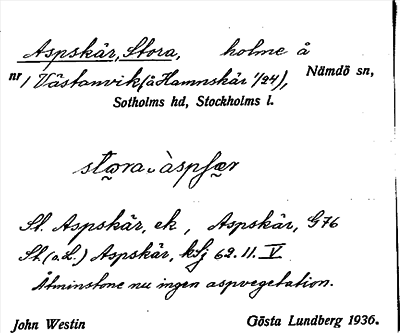 Aspskär, Stora, holme å
nr 1 Västanvik (å Hamnskär 1/24), Nämdö sn,
Sotholms hd, Stockholms l.
St. Aspskär, ek, Aspskär, G76
St. (o. L.) Aspskär, ksj 62.11.V
Åtminstone nu ingen aspvegetation.
John Westin Gösta Lundberg 1936.